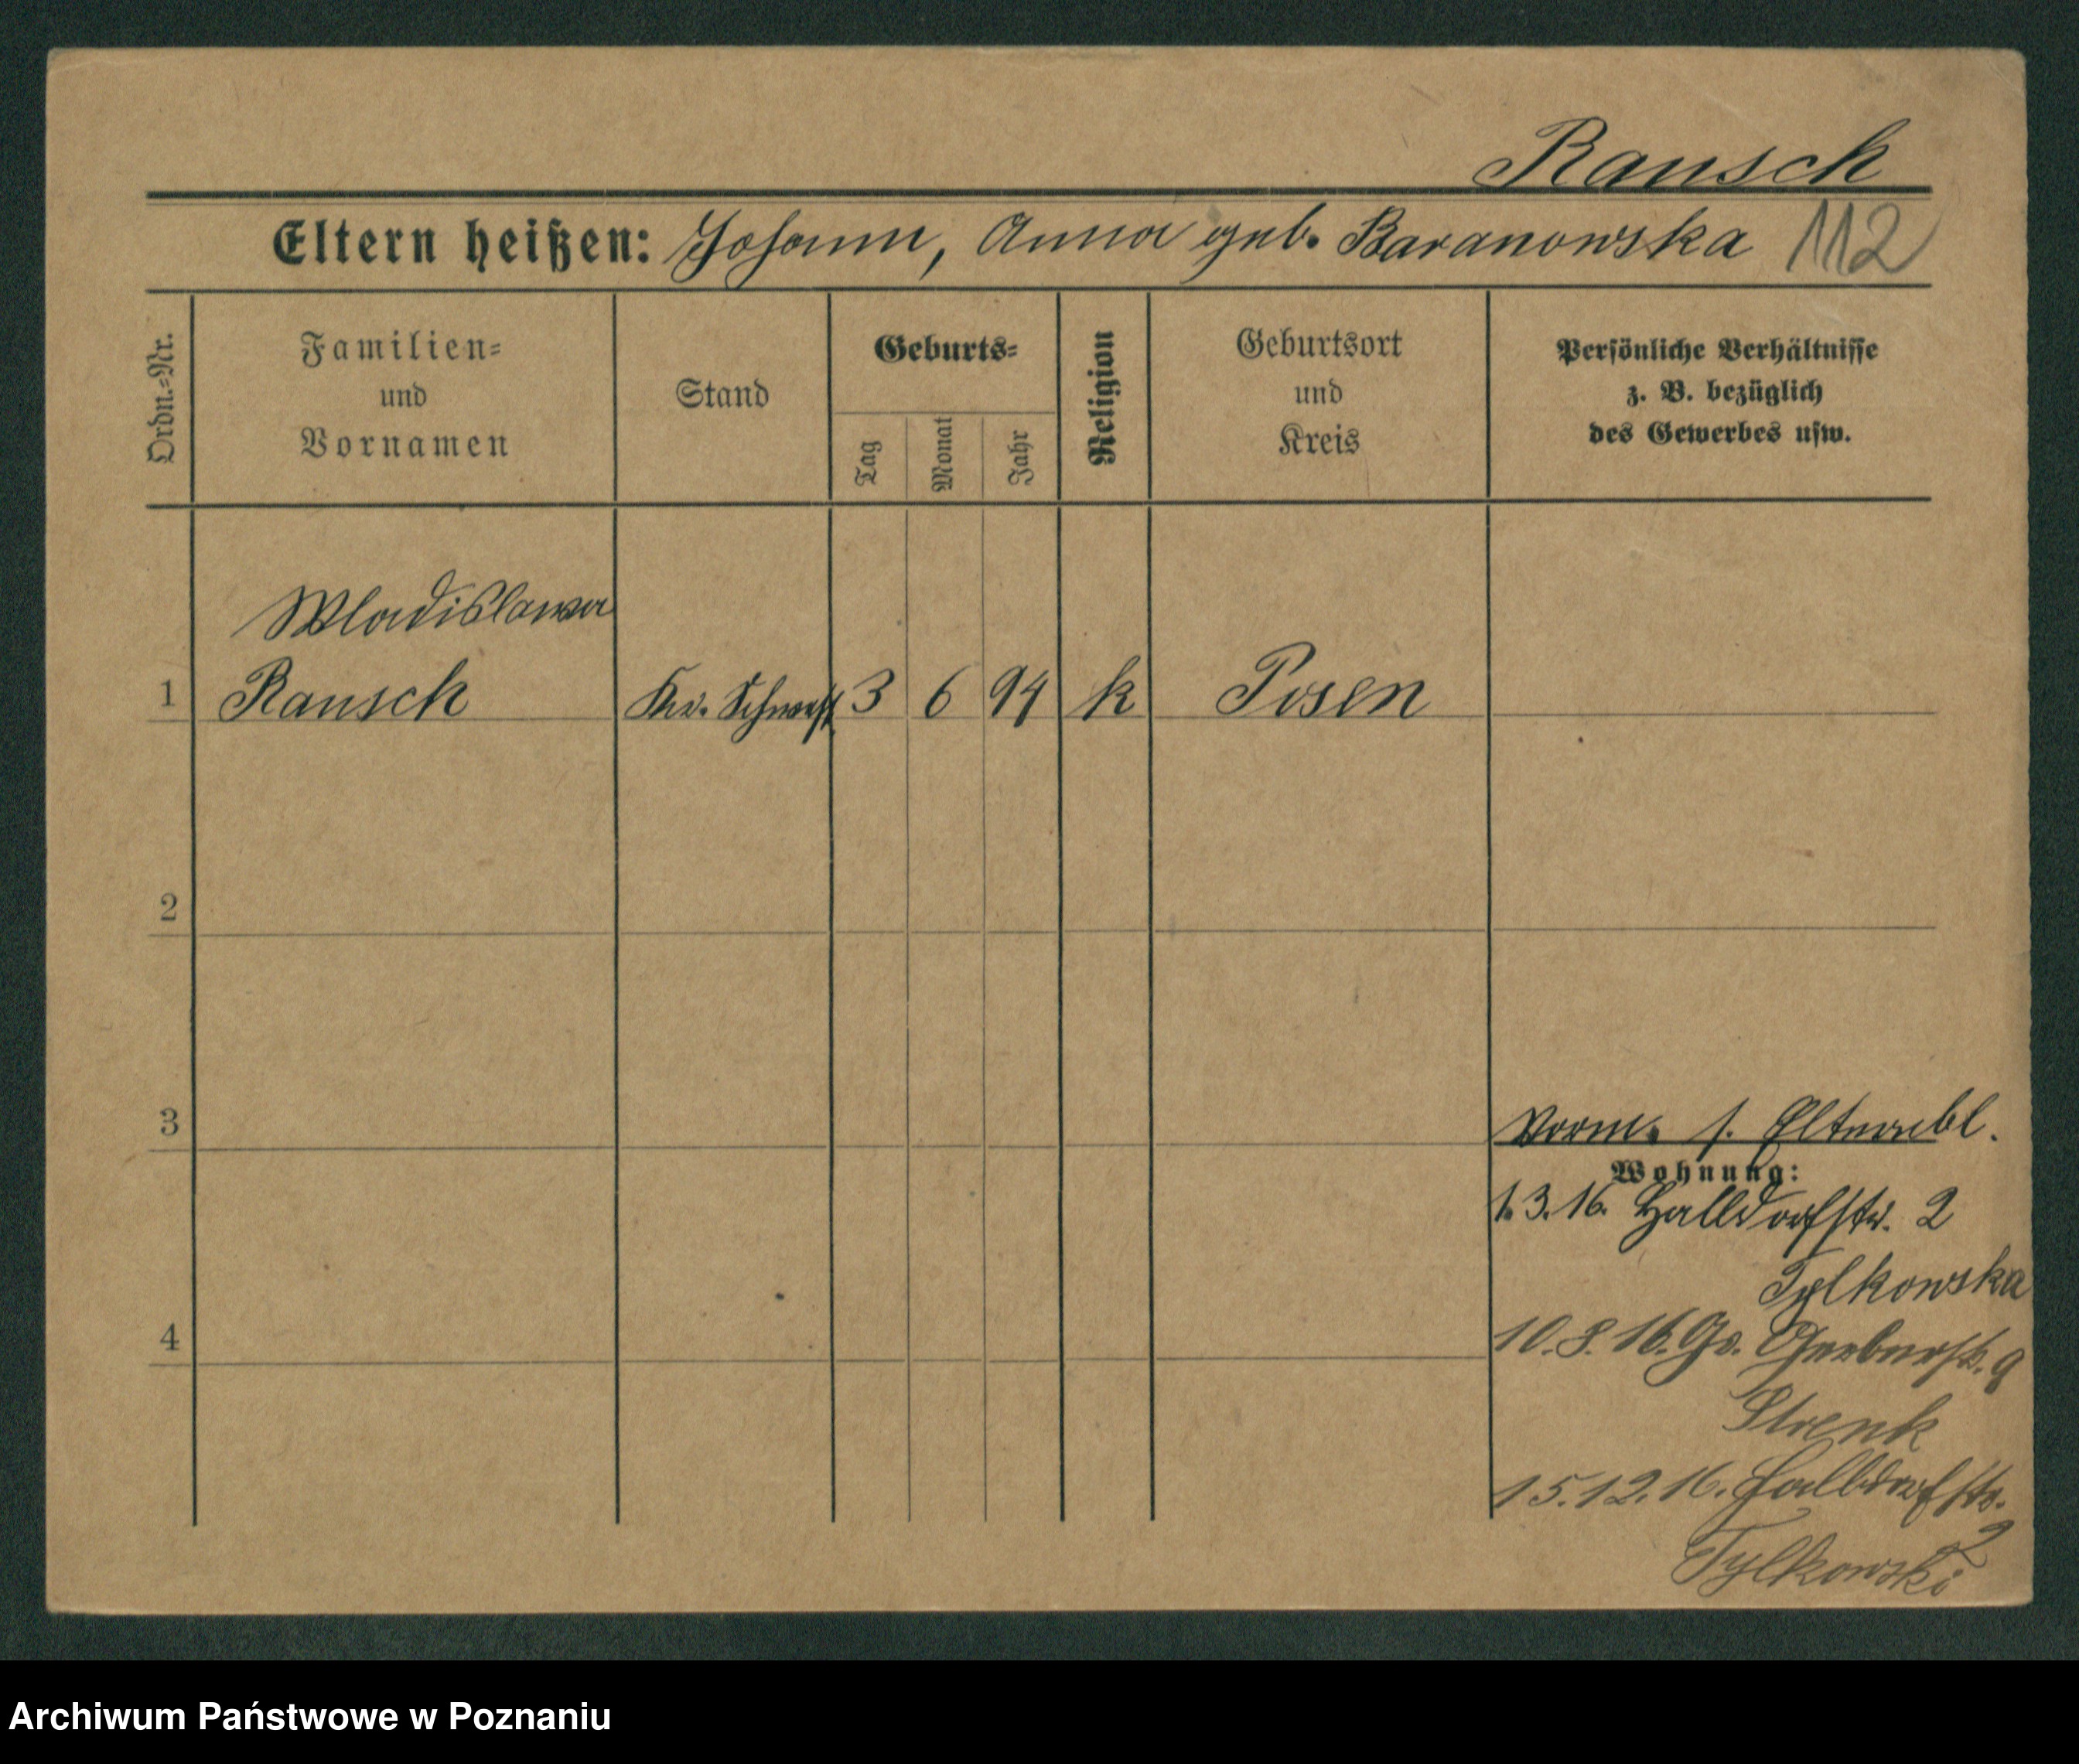 Rausch
Eltern heißen: Johann, Anna geb. Baranowska 112
Ordn.-Nr.
Familien-
und
Vornamen
Stand
Geburts-
Tag
Monat
Jahr
Religion
Geburtsort
und
Kreis
Persönliche Verhältnisse
z. B. bezüglich
des Gewerbes usw.
Wladislawa
1 Rausch Kr. Schwest 3 6 94 k Posen
2
3
Vorm. s. Elternbl.
Wohnung:
1.3.16. Halldorfstr. 2
Tylkowska
4
10.8.16. Gr. Gerberstr. 9
Strenk
15.12.16. Halbdorfstr.
2
Tylkowski
Archiwum Państwowe w Poznaniu